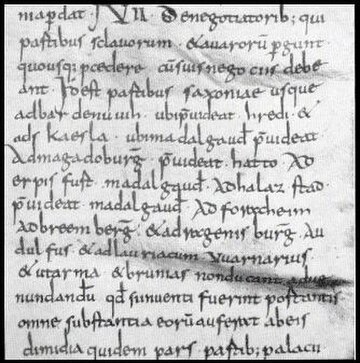 mandat. VII. De negotiatorib; qui
partibus sclavorum. & avarorũ pergunt.
quousq; procedere cũ suis negociis debe
ant. Id est partibus saxoniae usque
ad bardenuuih. ubi p̃videat hredi. &
ad skaesla. ubi madalgaud p̃videat.
Ad magadoburg. p̃videat. hatto. Ad
erpisfurt. madalgaud. Ad halazstad.
p̃videat madalgaud. Ad foracheim
Ad breemberg. & ad reganisburg. Au
dulfus. & ad lauriacum Vuarnarius.
& ut arma & brunias non ducant ad ue
nundandũ. qđ si inventi fuerint portantes
omne substantia eorũ auferat ab eis
dimidia quidem pars partib; palacii